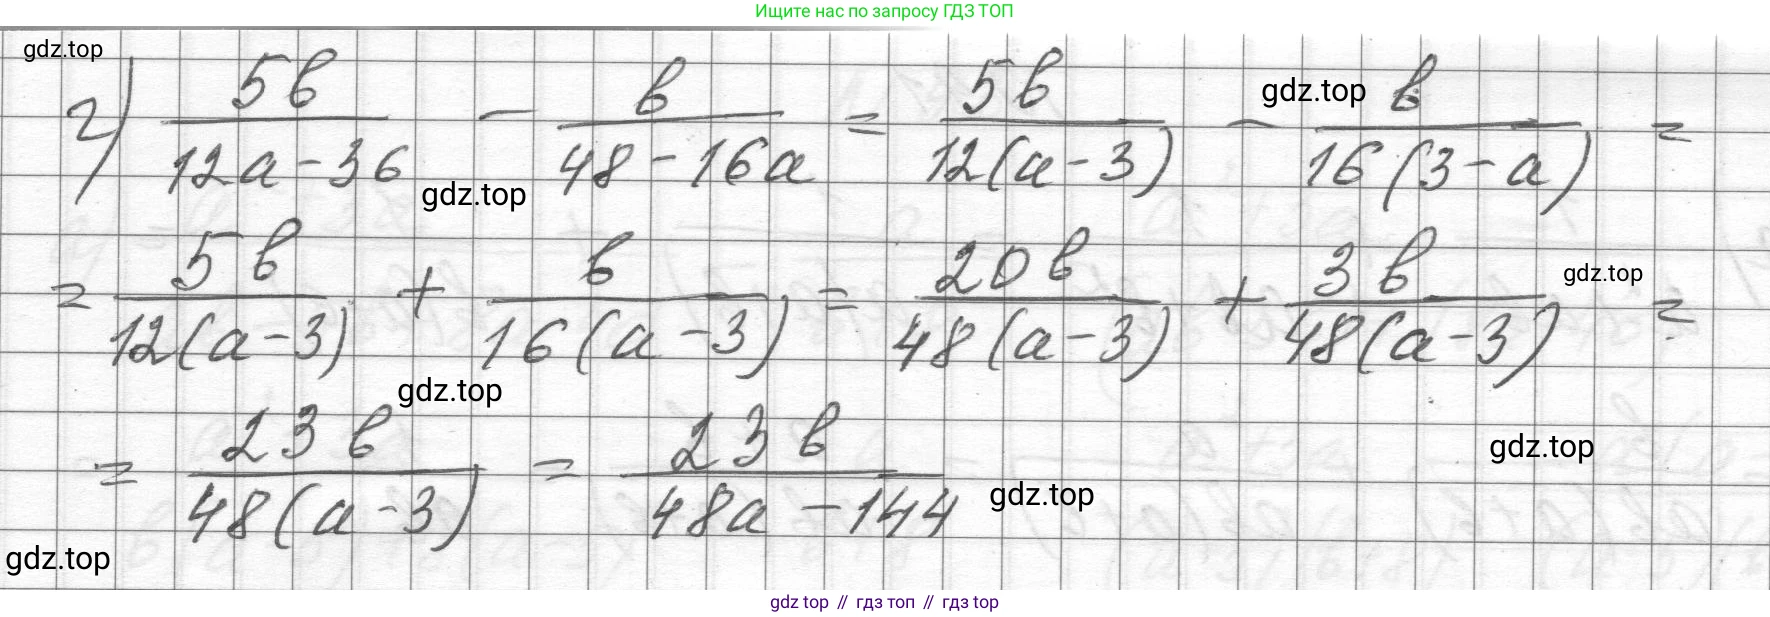 Ищите нас по запросу ГДЗ ТОП
gdz.top
г) 5b/(12a-36) - b/(48-16a) = 5b/(12(a-3)) - b/(16(3-a)) =
gdz.top
gdz.top
= 5b/(12(a-3)) + b/(16(a-3)) = 20b/(48(a-3)) + 3b/(48(a-3)) =
gdz.top
gdz.top
= 23b/(48(a-3)) = 23b/(48a-144)
gdz.top
gdz.top
gdz.top
gdz top // гдз топ // gdz top